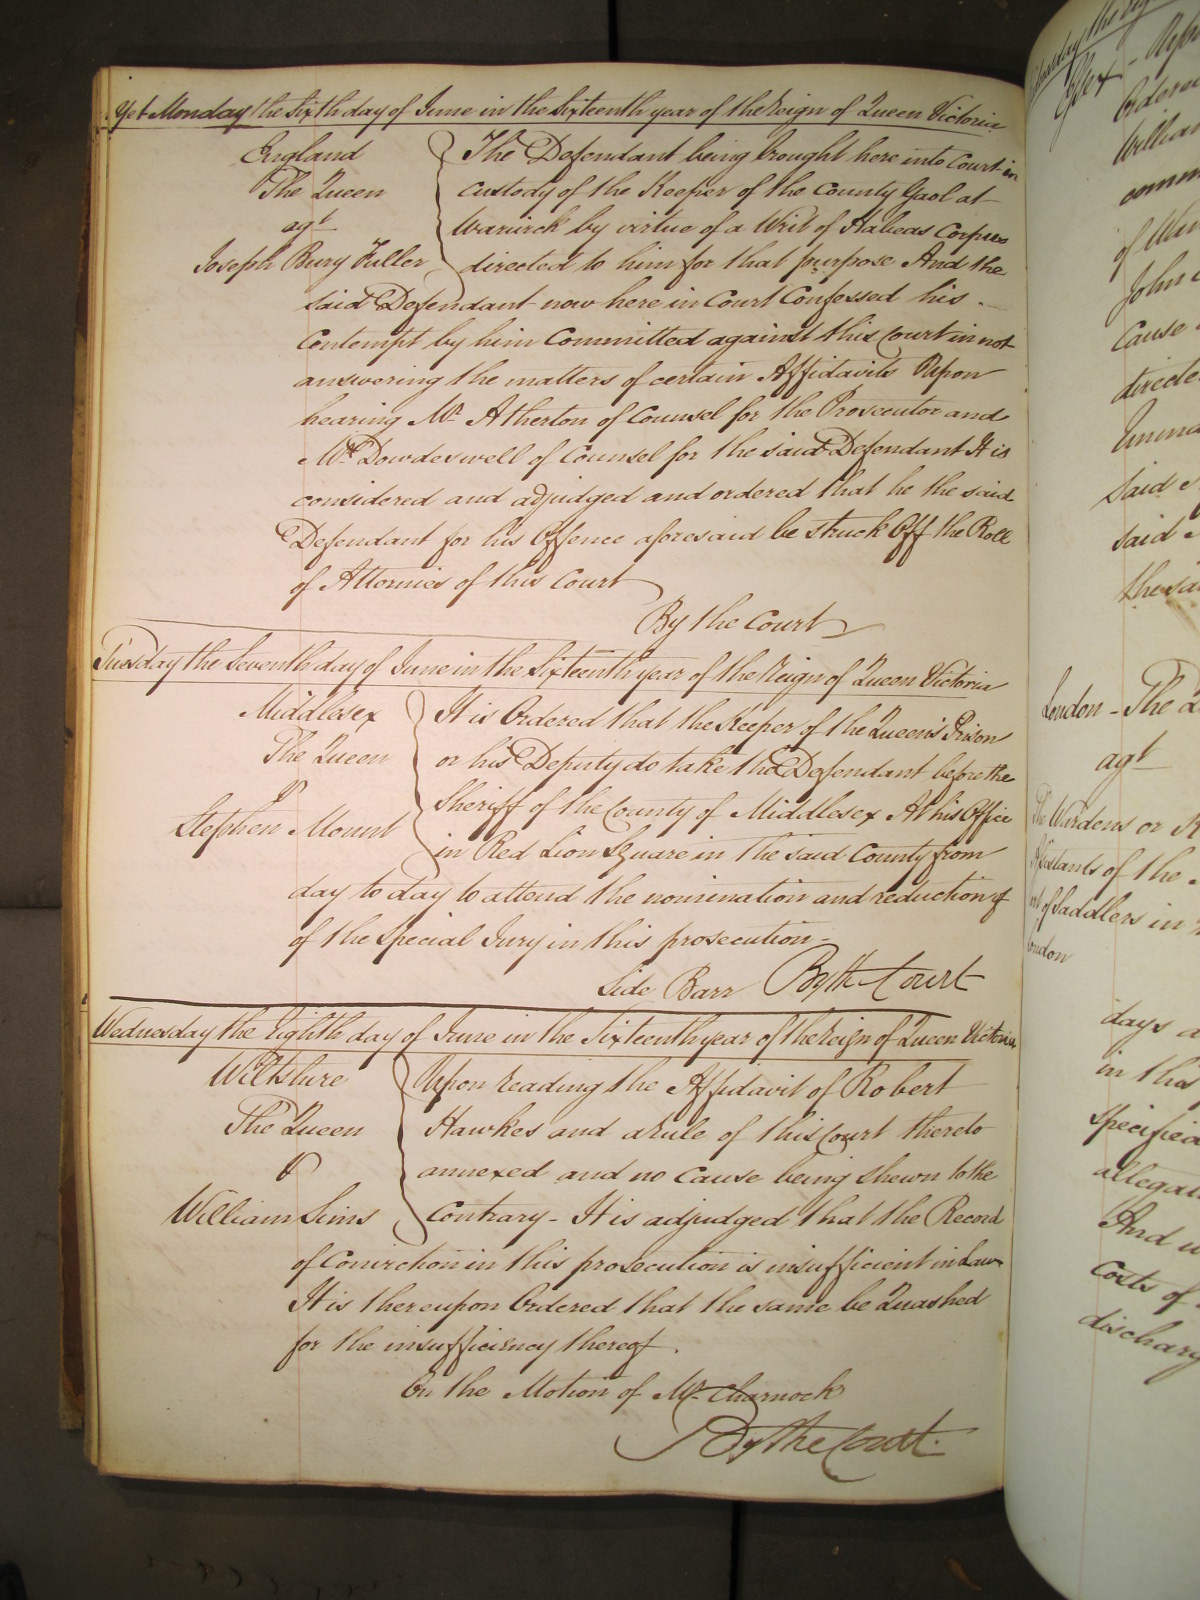 Yet Monday the Sixth day of June in the Sixteenth year of the Reign of Queen Victoria
England
The Queen
agt
Joseph Bury Fuller
The Defendant being brought here into Court in
custody of the Keeper of the County Gaol at
Warwick by virtue of a Writ of Habeas Corpus
directed to him for that purpose And the
said Defendant now here in Court Confessed his
Contempt by him Committed against this Court in not
answering the matters of certain Affidavits Upon
hearing Mr. Atherton of Counsel for the Prosecutor and
Mr. Dowdeswell of Counsel for the said Defendant It is
considered and adjudged and ordered that he the said
Defendant for his Offence aforesaid be struck Off the Roll
of Attornies of this Court
By the Court
Tuesday the Seventh day of June in the Sixteenth year of the Reign of Queen Victoria
Middlesex
The Queen
v
Stephen Mount
It is Ordered that the Keeper of the Queen's Prison
or his Deputy do take the Defendant before the
Sheriff of the County of Middlesex At his Office
in Red Lion Square in the said County from
day to day to attend the nomination and reduction of
of the Special Jury in this prosecution
Side Barr By the Court
Wednesday the Eighth day of June in the Sixteenth year of the Reign of Queen Victoria
Wiltshire
The Queen
v
William Sims
Upon reading the Affidavit of Robert
Hawkes and a Rule of this Court thereto
annexed and no Cause being shewn to the
Contrary - It is adjudged that the Record
of Conviction in this prosecution is insufficient in Law
It is thereupon Ordered that the same be Quashed
for the insufficiency thereof.
On the Motion of Mr. Charnock
By the Court.
Ordered
William
comm
of
John
Cause
directe
Emma
said
said
the sa
London - The
agt
The Wardens or
Assistants of the
of Saddlers in
London
days a
in this
Specified
allegat
And u
Costs of
discharg